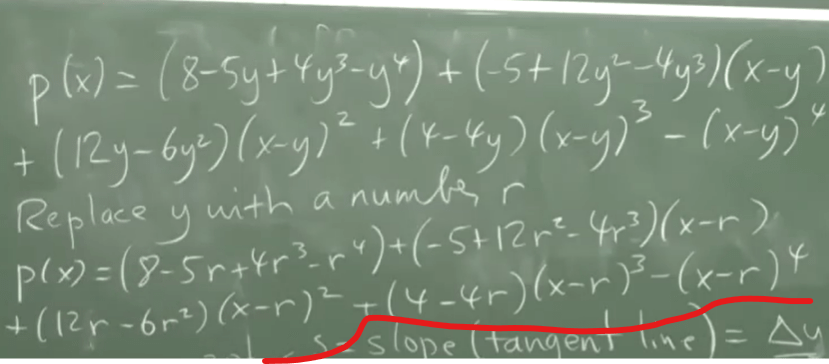 p(x) = (8-5y+4y³-y⁴) + (-5+12y²-4y³)(x-y)
+ (12y-6y²)(x-y)² + (4-4y)(x-y)³ - (x-y)⁴
Replace y with a number r
p(x) = (8-5r+4r³-r⁴)+(-5+12r²-4r³)(x-r)
+(12r-6r²)(x-r)² +(4-4r)(x-r)³-(x-r)⁴
slope (tangent line) = Δy